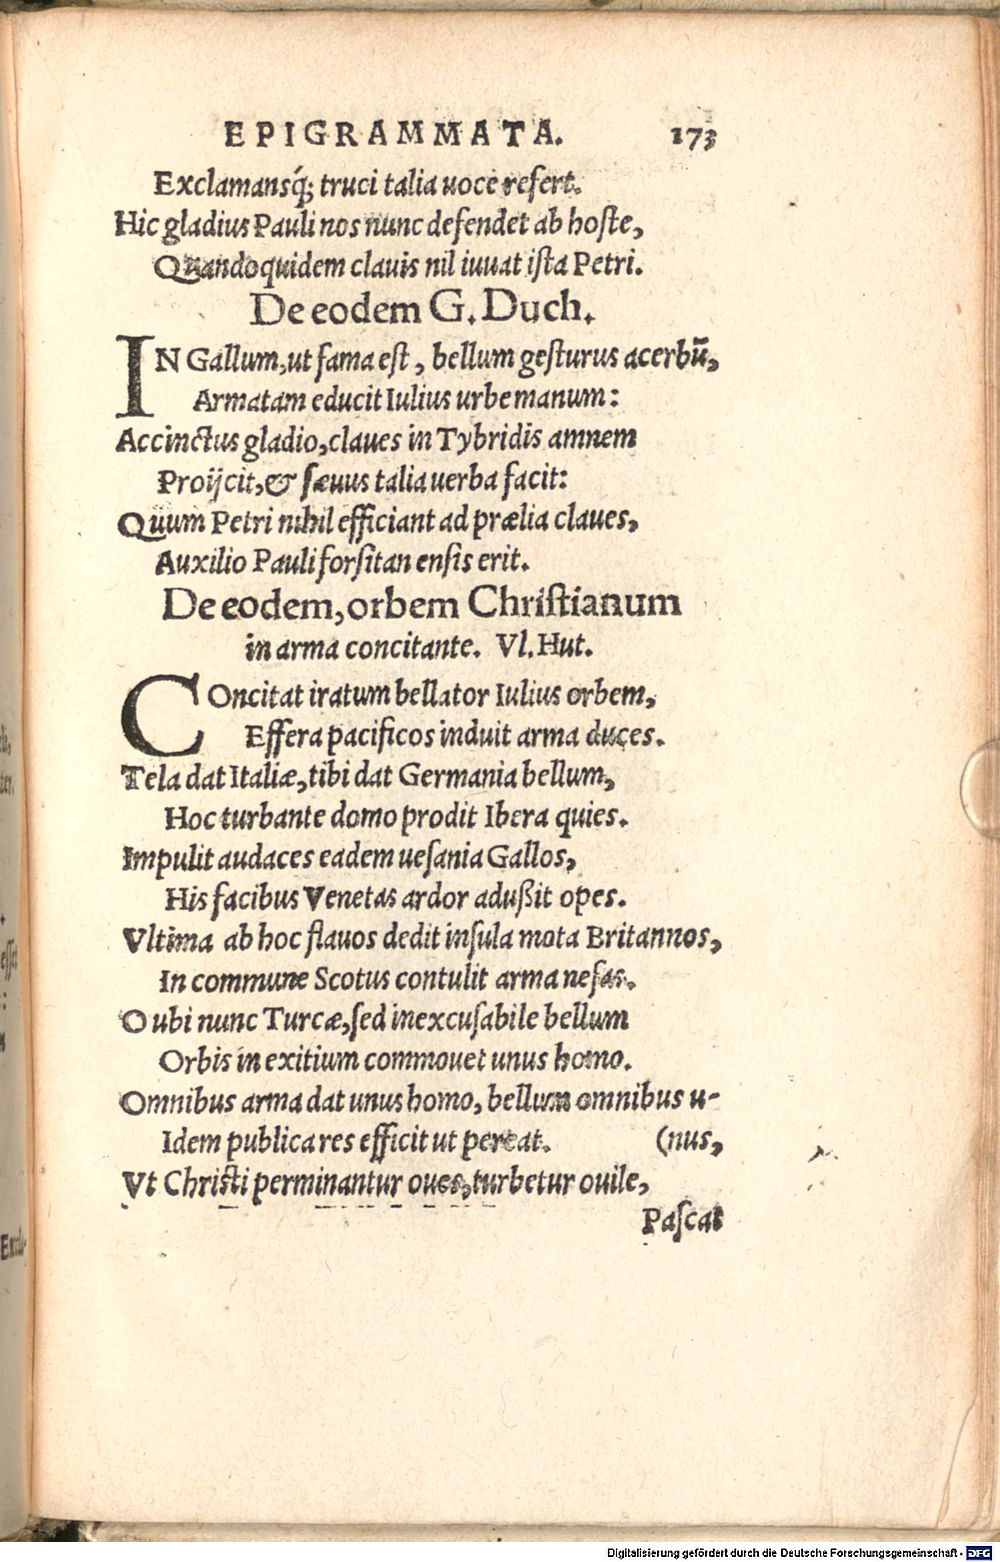 EPIGRAMMATA. 173
Exclamansq́; truci talia uoce refert.
Hic gladius Pauli nos nunc defendet ab hoſte,
Quandoquidem clauis nil iuuat iſta Petri.
De eodem G. Duch.
IN Gallum, ut fama eſt, bellum geſturus acerbū,
Armatam educit Iulius urbe manum:
Accinctus gladio, claues in Tybridis amnem
Proijcit, & ſæuus talia uerba facit:
Quum Petri nihil efficiant ad prælia claues,
Auxilio Pauli forſitan enſis erit.
De eodem, orbem Chriſtianum
in arma concitante. Vl. Hut.
COncitat iratum bellator Iulius orbem,
Effera pacificos induit arma duces.
Tela dat Italiæ, tibi dat Germania bellum,
Hoc turbante domo prodit Ibera quies.
Impulit audaces eadem ueſania Gallos,
His facibus Venetas ardor adußit opes.
Vltima ab hoc flauos dedit inſula mota Britannos,
In commune Scotus contulit arma nefas.
O ubi nunc Turcæ, ſed inexcuſabile bellum
Orbis in exitium commouet unus homo.
Omnibus arma dat unus homo, bellum omnibus u-
Idem publica res efficit ut pereat. (nus,
Vt Chriſti perminantur oues, turbetur ouile,
Paſcat
Digitalisierung gefördert durch die Deutsche Forschungsgemeinschaft - DFG